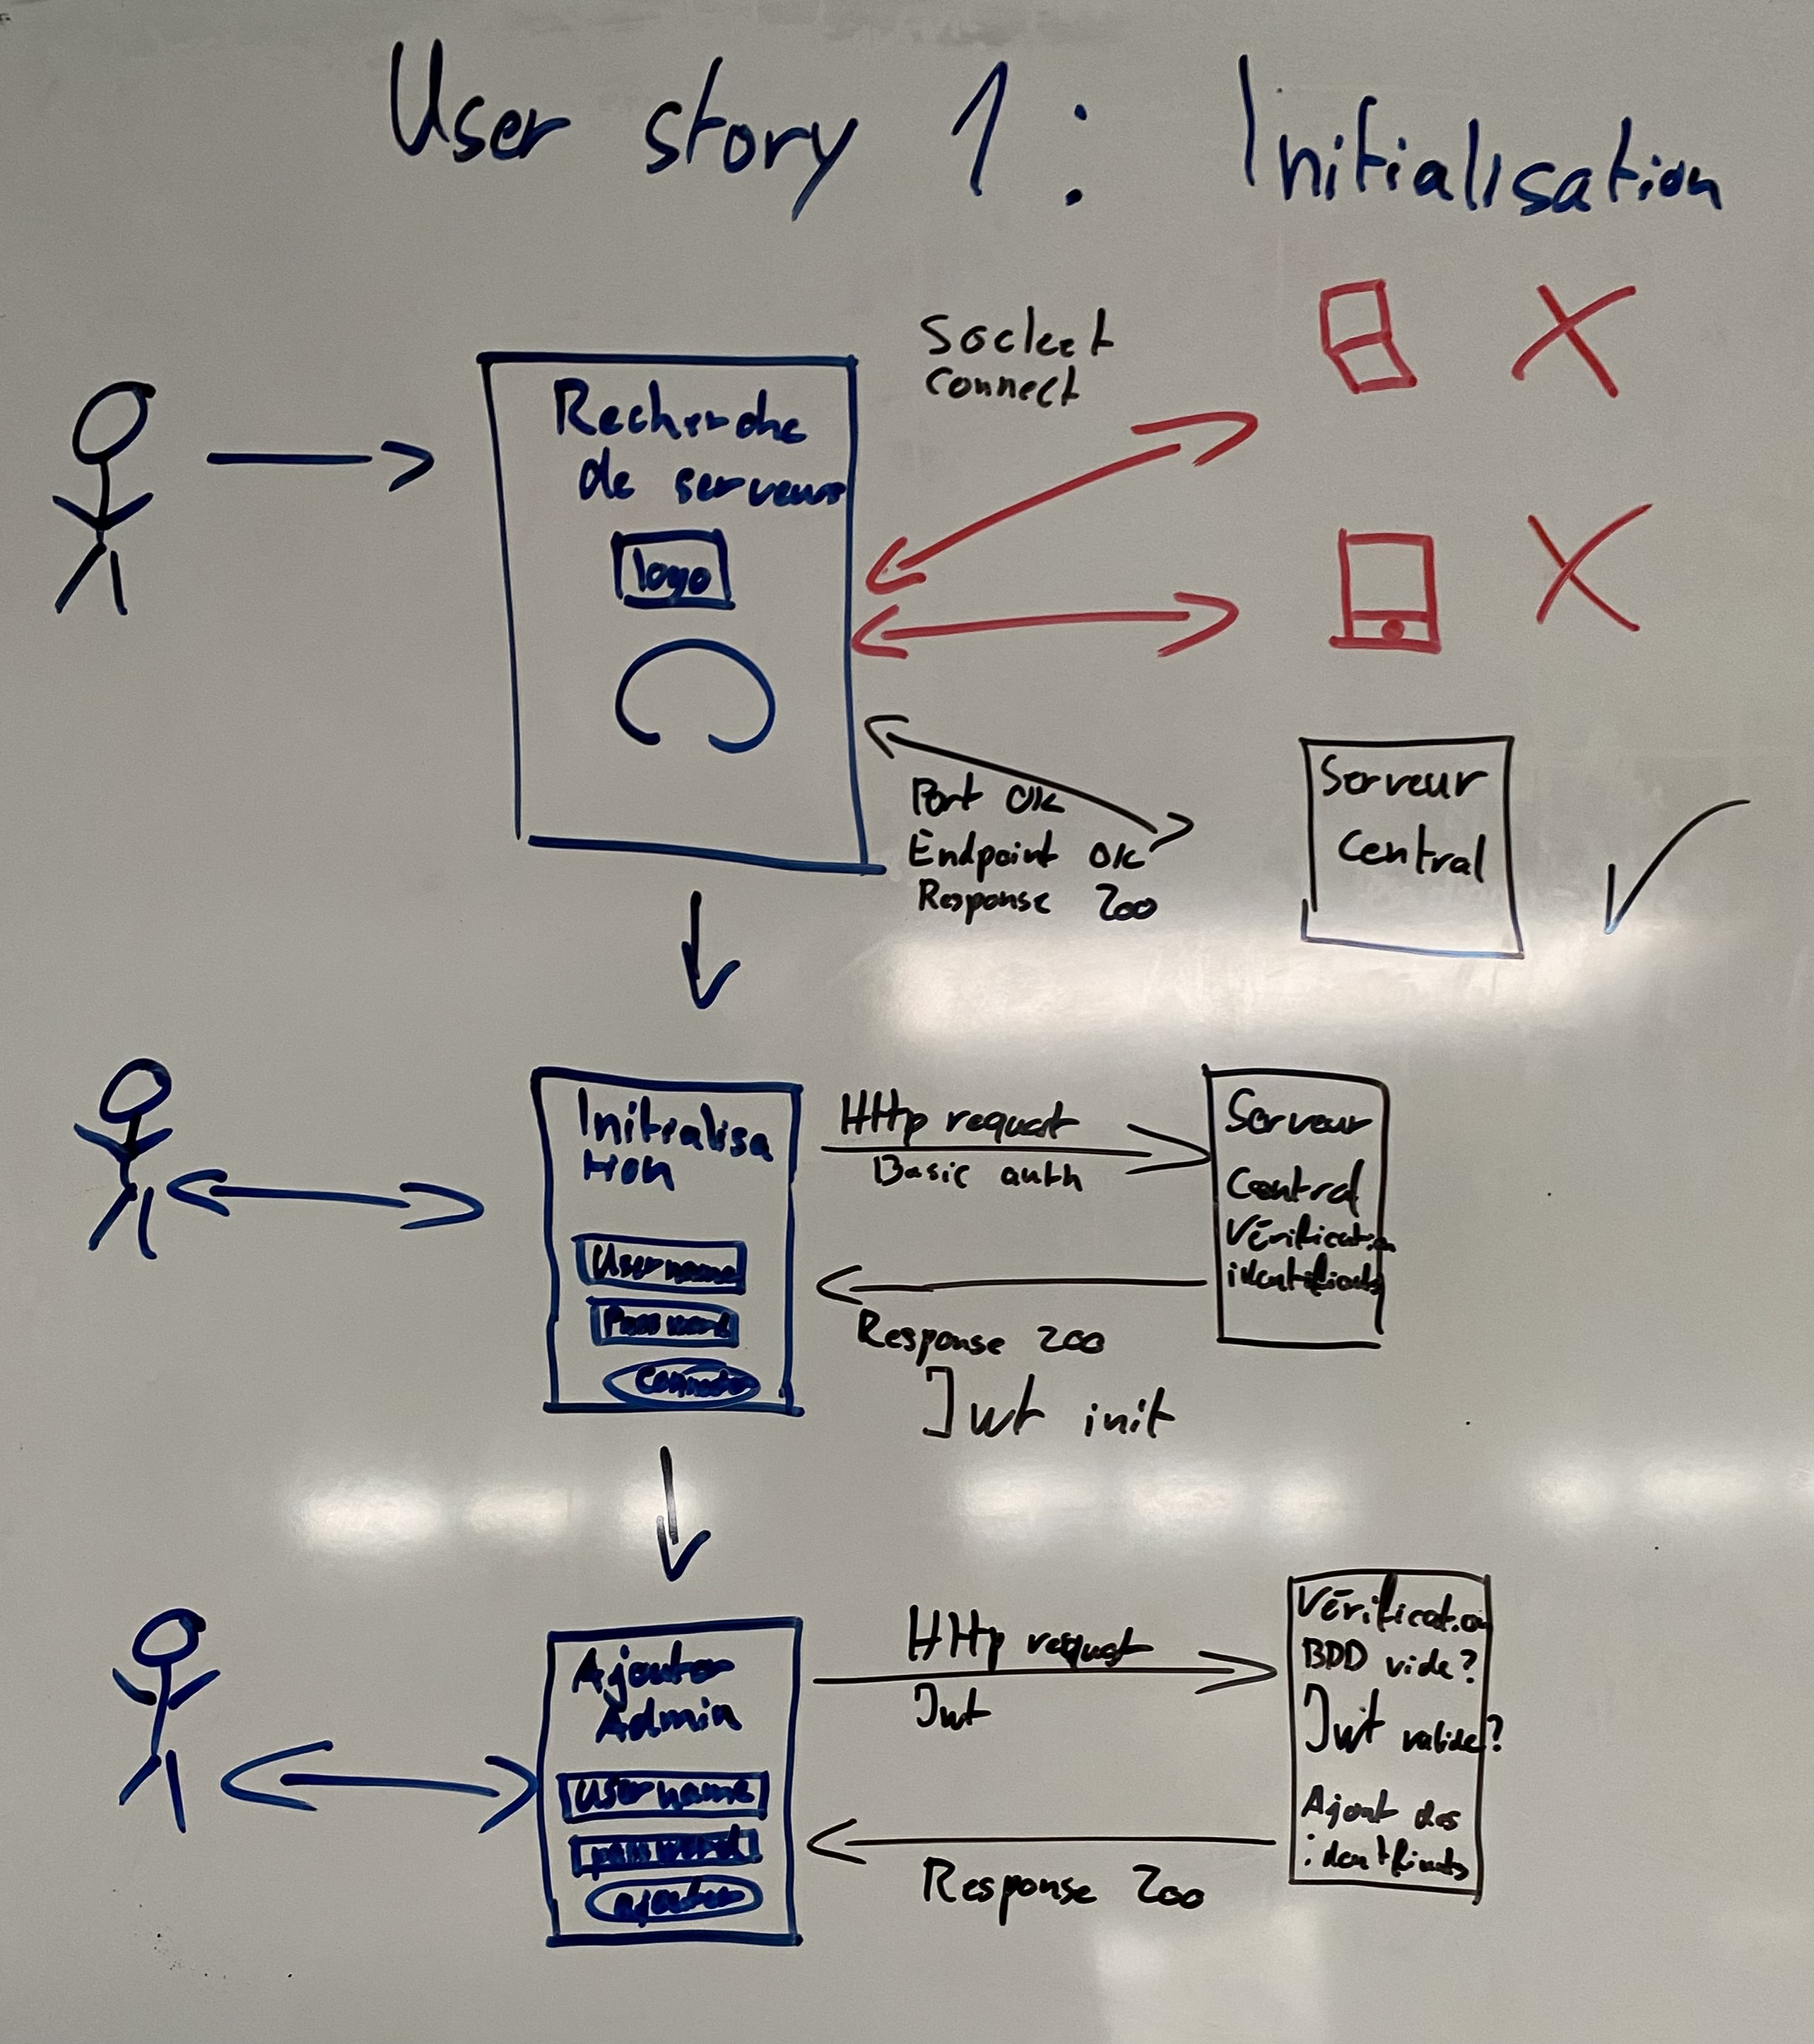 User story 1 : Initialisation
Socket
connect
Recherche
de serveur
logo
Port OK
Endpoint OK
Response 200
Serveur
Central
Initialisa
tion
Username
Password
HHtp request
Basic auth
Serveur
Central
Vérification
identifiants
Response 200
Jwt init
Ajouter
Admin
username
password
ajouter
HHtp request
Jwt
Vérification
BDD vide?
Jwt valide?
Ajout des
identifiants
Response 200